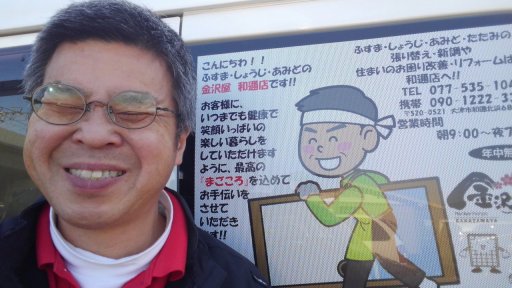 こんにちわ!!
ふすま・しょうじ・あみどの
金沢屋 和邇店です!!
お客様に、
いつまでも健康で
笑顔いっぱいの
楽しい暮らしを
していただけます
ように、最高の
『まごころ』を込めて
お手伝いを
させて
いただき
ます!!
ふすま・しょうじ・あみど・たたみの
張り替え・新調や
住まいのお困り改善・リフォームは
和邇店へ!!
TEL 077-535-104
携帯 090-1222-3
〒520-0521 大津市和邇北浜6
営業時間
朝9:00〜夜7
年中無
金沢
KANAZAWAYA